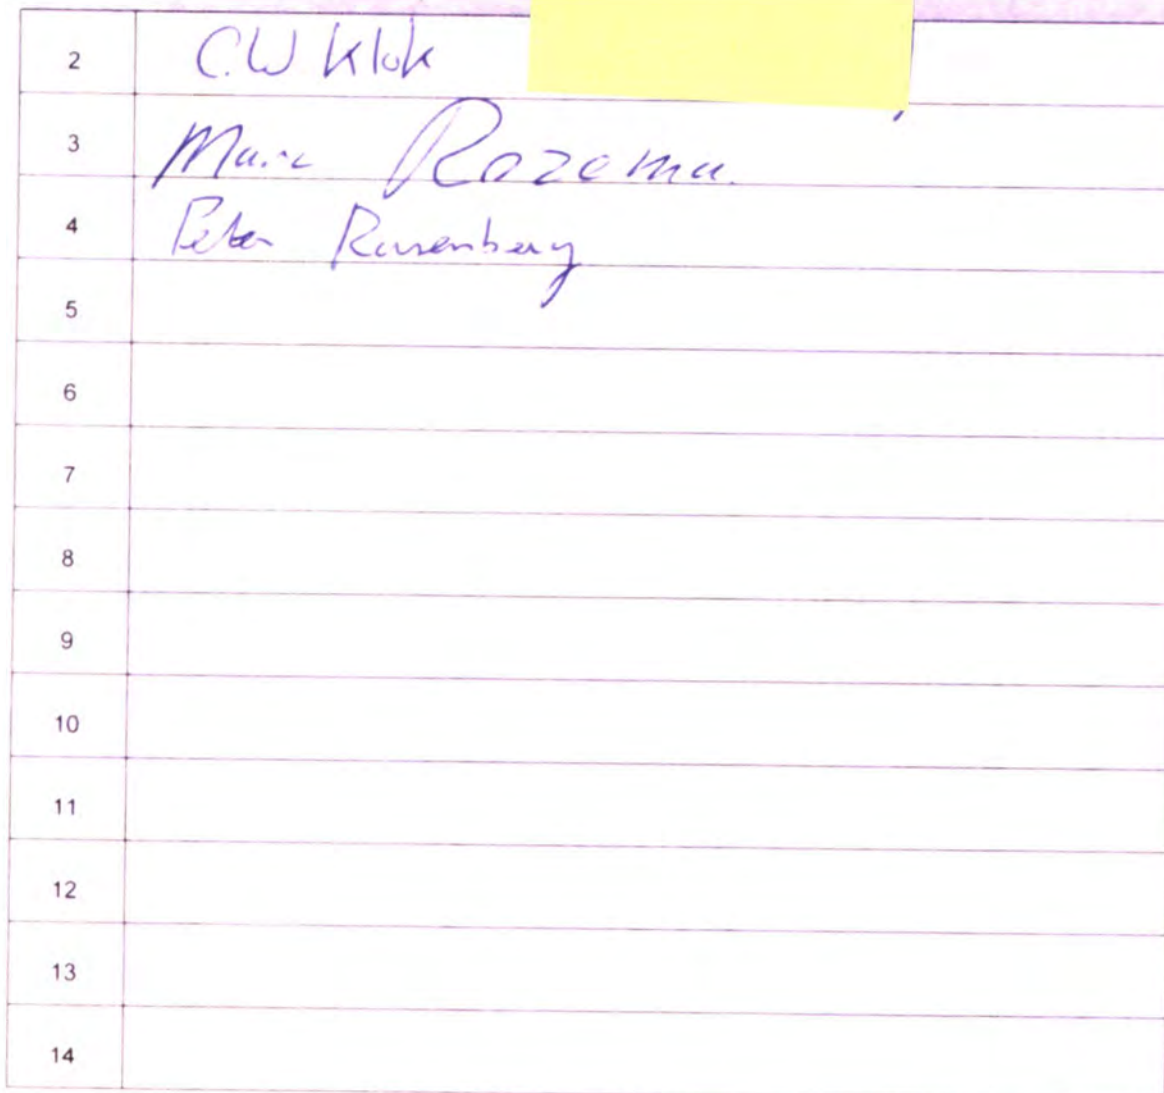 2 C.W Klok
3 Marc Rozema.
4 Peter Rosenberg
5
6
7
8
9
10
11
12
13
14